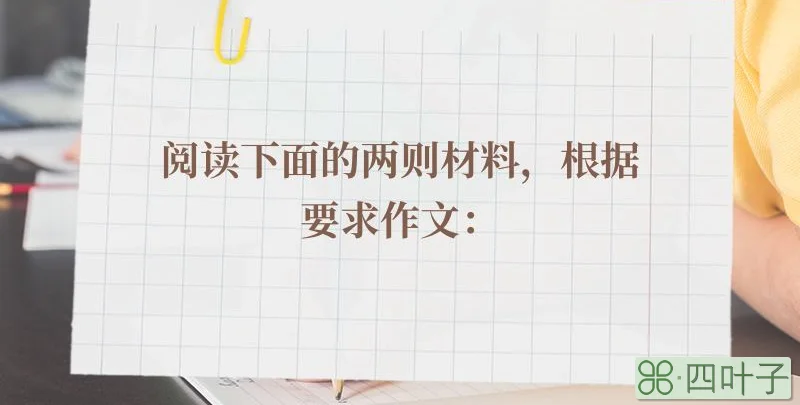 阅读下面的两则材料，根据
要求作文：
四叶子